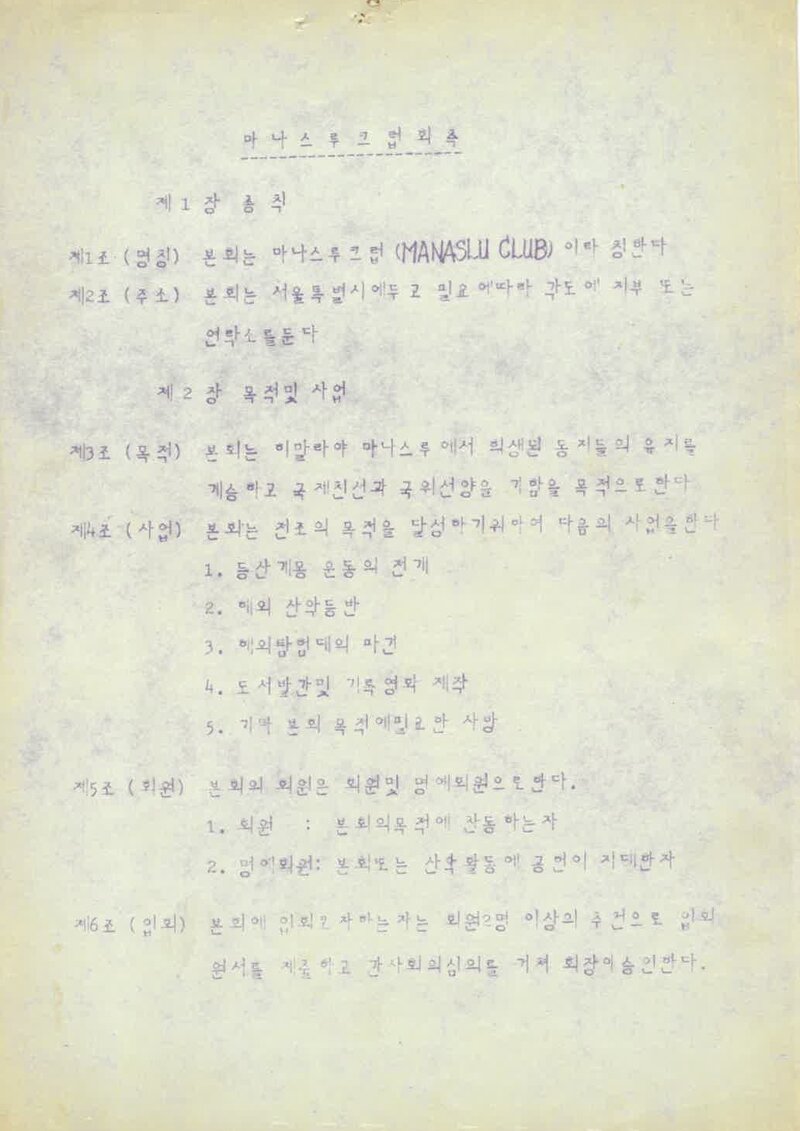 마나스루크럽회측
제 1 장 총 칙
제1조 (명칭) 본회는 마나스루크럽 (MANASLU CLUB) 이라 칭한다
제2조 (주소) 본회는 서울특별시에두고 필요에따라 각도에 지부 또는
연락소를둔다
제 2 장 목적및 사업
제3조 (목적) 본회는 히말라야 마나스루에서 희생된 동지들의 유지를
계승하고 국제친선과 국위선양을 기함을 목적으로한다
제4조 (사업) 본회는 전조의 목적을 달성하기위하여 다음의 사업을한다
1. 등산계몽 운동의 전개
2. 해외 산악등반
3. 해외탐험대의 파견
4. 도서발간및 기록영화 제작
5. 기타 본회 목적에필요한 사항
제5조 (회원) 본회의 회원은 회원및 명예회원으로한다.
1. 회원 : 본회의목적에 찬동하는자
2. 명예회원: 본회또는 산악활동에 공헌이 지대한자
제6조 (입회) 본회에 입회코자하는자는 회원2명 이상의 추천으로 입회
원서를 제출하고 간사회의심의를 거쳐 회장이승인한다.